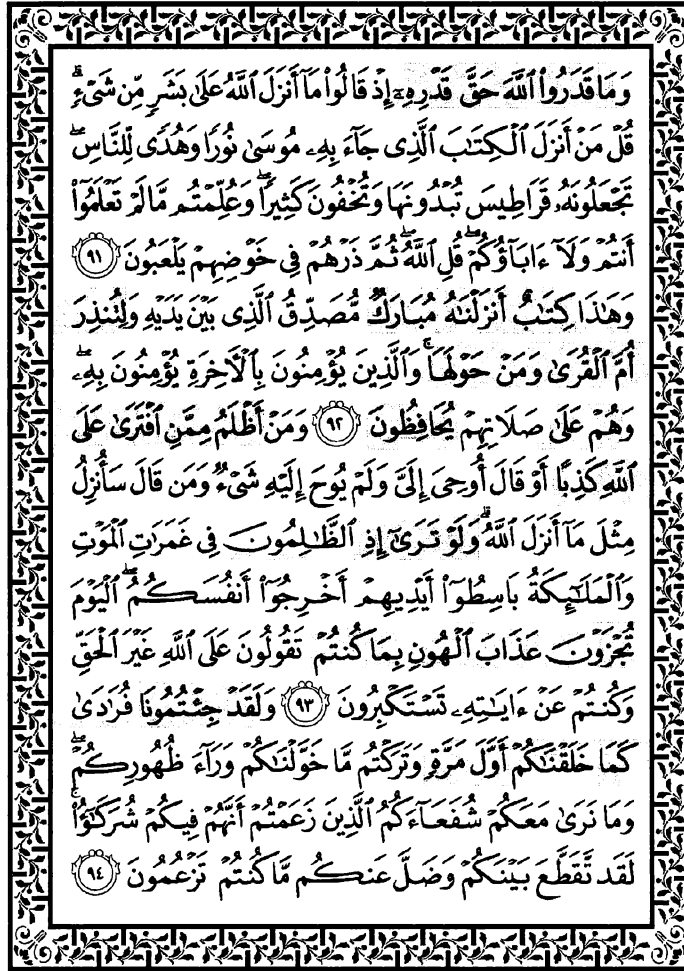 وَمَا قَدَرُوا۟ ٱللَّهَ حَقَّ قَدْرِهِۦٓ إِذْ قَالُوا۟ مَآ أَنزَلَ ٱللَّهُ عَلَىٰ بَشَرٍ مِّن شَىْءٍ ۗ
قُلْ مَنْ أَنزَلَ ٱلْكِتَٰبَ ٱلَّذِى جَآءَ بِهِۦ مُوسَىٰ نُورًا وَهُدًى لِّلنَّاسِ ۖ
تَجْعَلُونَهُۥ قَرَاطِيسَ تُبْدُونَهَا وَتُخْفُونَ كَثِيرًا ۖ وَعُلِّمْتُم مَّا لَمْ تَعْلَمُوٓا۟
أَنتُمْ وَلَآ ءَابَآؤُكُمْ ۖ قُلِ ٱللَّهُ ۖ ثُمَّ ذَرْهُمْ فِى خَوْضِهِمْ يَلْعَبُونَ ٩١
وَهَٰذَا كِتَٰبٌ أَنزَلْنَٰهُ مُبَارَكٌ مُّصَدِّقُ ٱلَّذِى بَيْنَ يَدَيْهِ وَلِتُنذِرَ
أُمَّ ٱلْقُرَىٰ وَمَنْ حَوْلَهَا ۚ وَٱلَّذِينَ يُؤْمِنُونَ بِٱلْءَاخِرَةِ يُؤْمِنُونَ بِهِۦ ۖ
وَهُمْ عَلَىٰ صَلَاتِهِمْ يُحَافِظُونَ ٩٢ وَمَنْ أَظْلَمُ مِمَّنِ ٱفْتَرَىٰ عَلَى
ٱللَّهِ كَذِبًا أَوْ قَالَ أُوحِىَ إِلَىَّ وَلَمْ يُوحَ إِلَيْهِ شَىْءٌ وَمَن قَالَ سَأُنزِلُ
مِثْلَ مَآ أَنزَلَ ٱللَّهُ ۗ وَلَوْ تَرَىٰٓ إِذِ ٱلظَّٰلِمُونَ فِى غَمَرَٰتِ ٱلْمَوْتِ
وَٱلْمَلَٰٓئِكَةُ بَاسِطُوٓا۟ أَيْدِيهِمْ أَخْرِجُوٓا۟ أَنفُسَكُمُ ۖ ٱلْيَوْمَ
تُجْزَوْنَ عَذَابَ ٱلْهُونِ بِمَا كُنتُمْ تَقُولُونَ عَلَى ٱللَّهِ غَيْرَ ٱلْحَقِّ
وَكُنتُمْ عَنْ ءَايَٰتِهِۦ تَسْتَكْبِرُونَ ٩٣ وَلَقَدْ جِئْتُمُونَا فُرَٰدَىٰ
كَمَا خَلَقْنَٰكُمْ أَوَّلَ مَرَّةٍ وَتَرَكْتُم مَّا خَوَّلْنَٰكُمْ وَرَآءَ ظُهُورِكُمْ ۖ
وَمَا نَرَىٰ مَعَكُمْ شُفَعَآءَكُمُ ٱلَّذِينَ زَعَمْتُمْ أَنَّهُمْ فِيكُمْ شُرَكَٰٓؤُا۟ ۚ
لَقَد تَّقَطَّعَ بَيْنَكُمْ وَضَلَّ عَنكُم مَّا كُنتُمْ تَزْعُمُونَ ٩٤